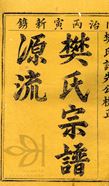 同治丙寅新鐫
樊氏宗譜
源流